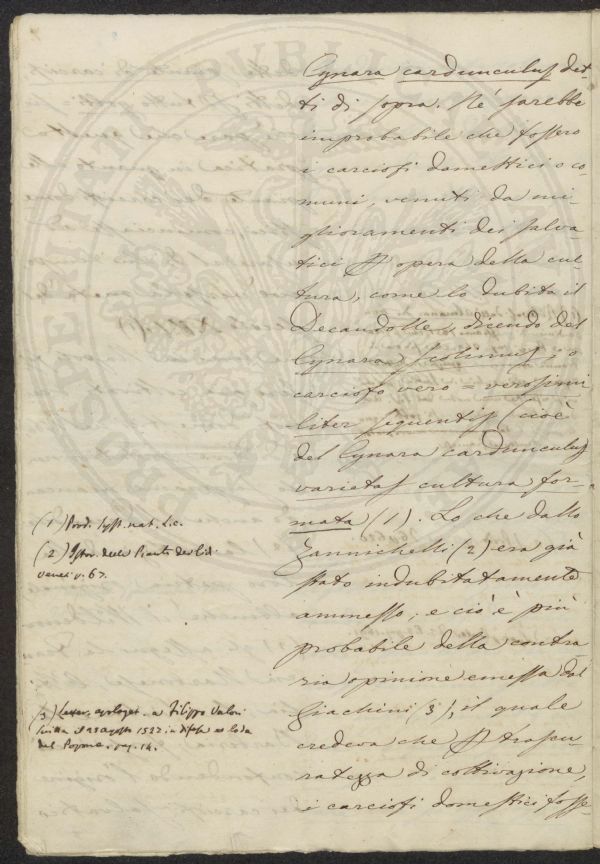 Cynara cardunculus det-
ti di sopra. Né sarebbe
improbabile che fossero
i carciofi domestici o co-
muni, venuti da mi-
glioramenti dei salva-
tici opera della cul-
tura, come lo dubita il
Decandolle, dicendo del
Cynara scolimus, o
carciofo vero = verosimi
liter sequentis (cioè
del Cynara cardunculus
varietas cultura for-
mata (1). Lo che dallo
Zannichelli (2) era già
stato indubitatamente
ammesso; e ciò è più
probabile della contra
ria opinione emessa dal
Giachini (3), il quale
credeva che trascu-
ratezza di coltivazione,
i carciofi domestici fosse-
(1) Prod. Syst. nat. l.c.
(2) Istor. delle Piante de' Lidi
Veneti p. 67.
(3) Letter. apologet. a Filippo Valori
scritta 23 agosto 1527 in difesa e loda
del Popone. pag. 14.